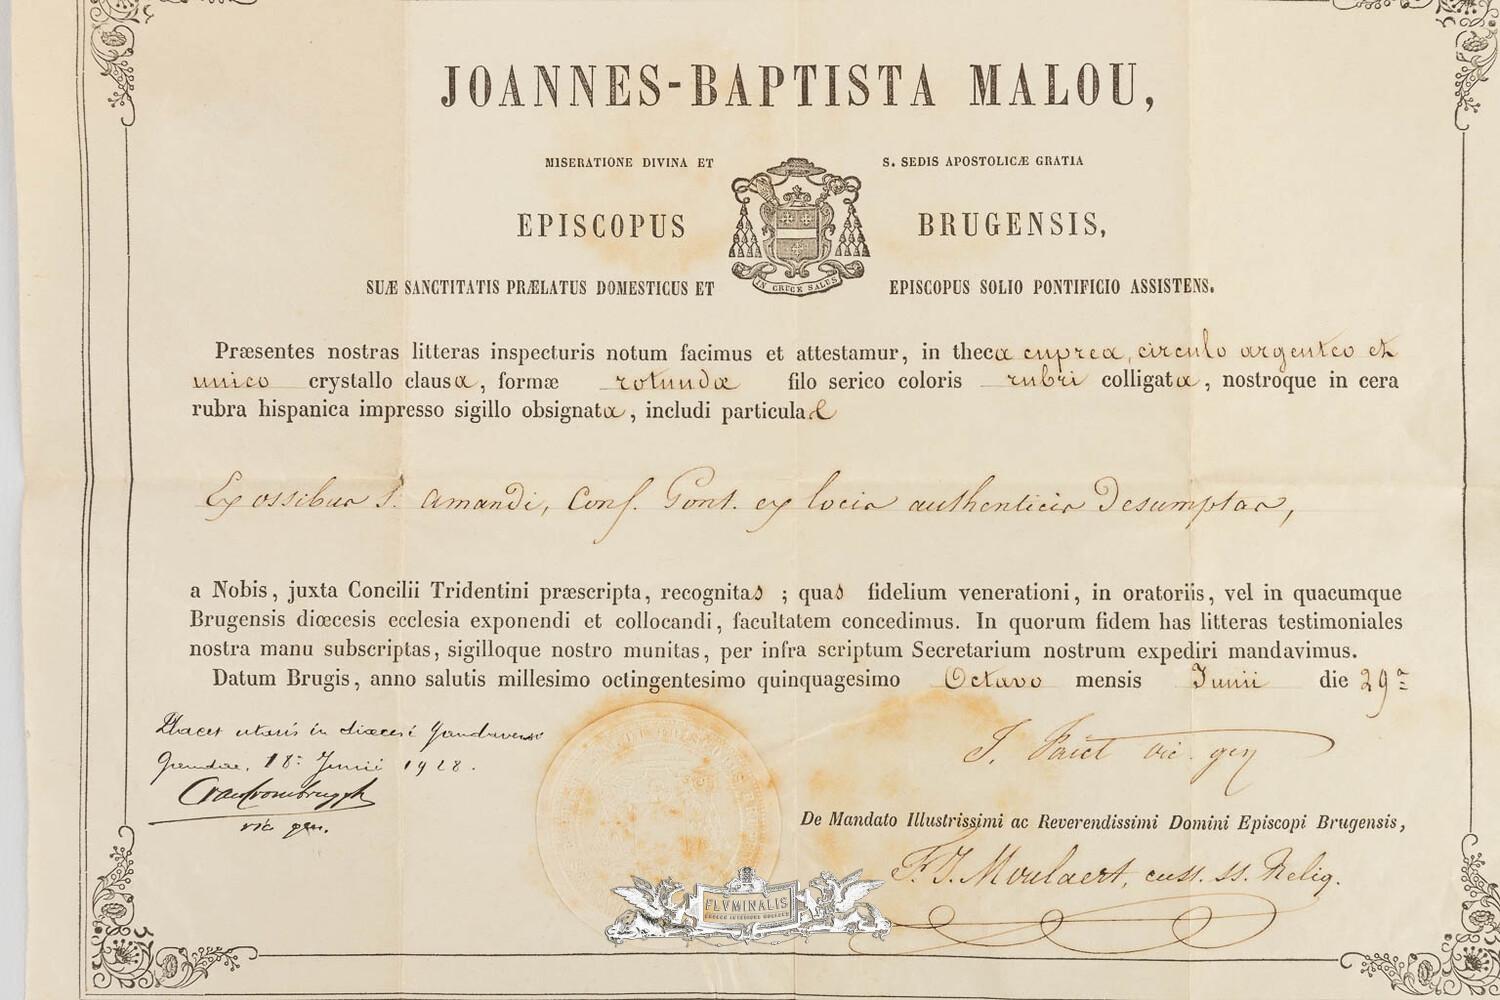 JOANNES-BAPTISTA MALOU,
MISERATIONE DIVINA ET S. SEDIS APOSTOLICÆ GRATIA
EPISCOPUS BRUGENSIS,
SUÆ SANCTITATIS PRÆLATUS DOMESTICUS ET EPISCOPUS SOLIO PONTIFICIO ASSISTENS.
IN CRUCE SALUS
Præsentes nostras litteras inspecturis notum facimus et attestamur, in theca cuprea, circulo argenteo et
unico crystallo clausa, formæ rotundæ filo serico coloris rubri colligata, nostroque in cera
rubra hispanica impresso sigillo obsignata, includi particulas
Ex ossibus S. Amandi, Conf. Pont. ex locis authenticis desumptas,
a Nobis, juxta Concilii Tridentini præscripta, recognitas ; quas fidelium venerationi, in oratoriis, vel in quacumque
Brugensis diœcesis ecclesia exponendi et collocandi, facultatem concedimus. In quorum fidem has litteras testimoniales
nostra manu subscriptas, sigilloque nostro munitas, per infra scriptum Secretarium nostrum expediri mandavimus.
Datum Brugis, anno salutis millesimo octingentesimo quinquagesimo Octavo mensis Junii die 29ª
Placet utaris in diœcesi Gandavensi
Gandae, 18ª Junii 1928.
vic gen.
J. Faict vic. gen
De Mandato Illustrissimi ac Reverendissimi Domini Episcopi Brugensis,
F. J. Moulaert, cust. ss. Reliq.
FLVMINALIS